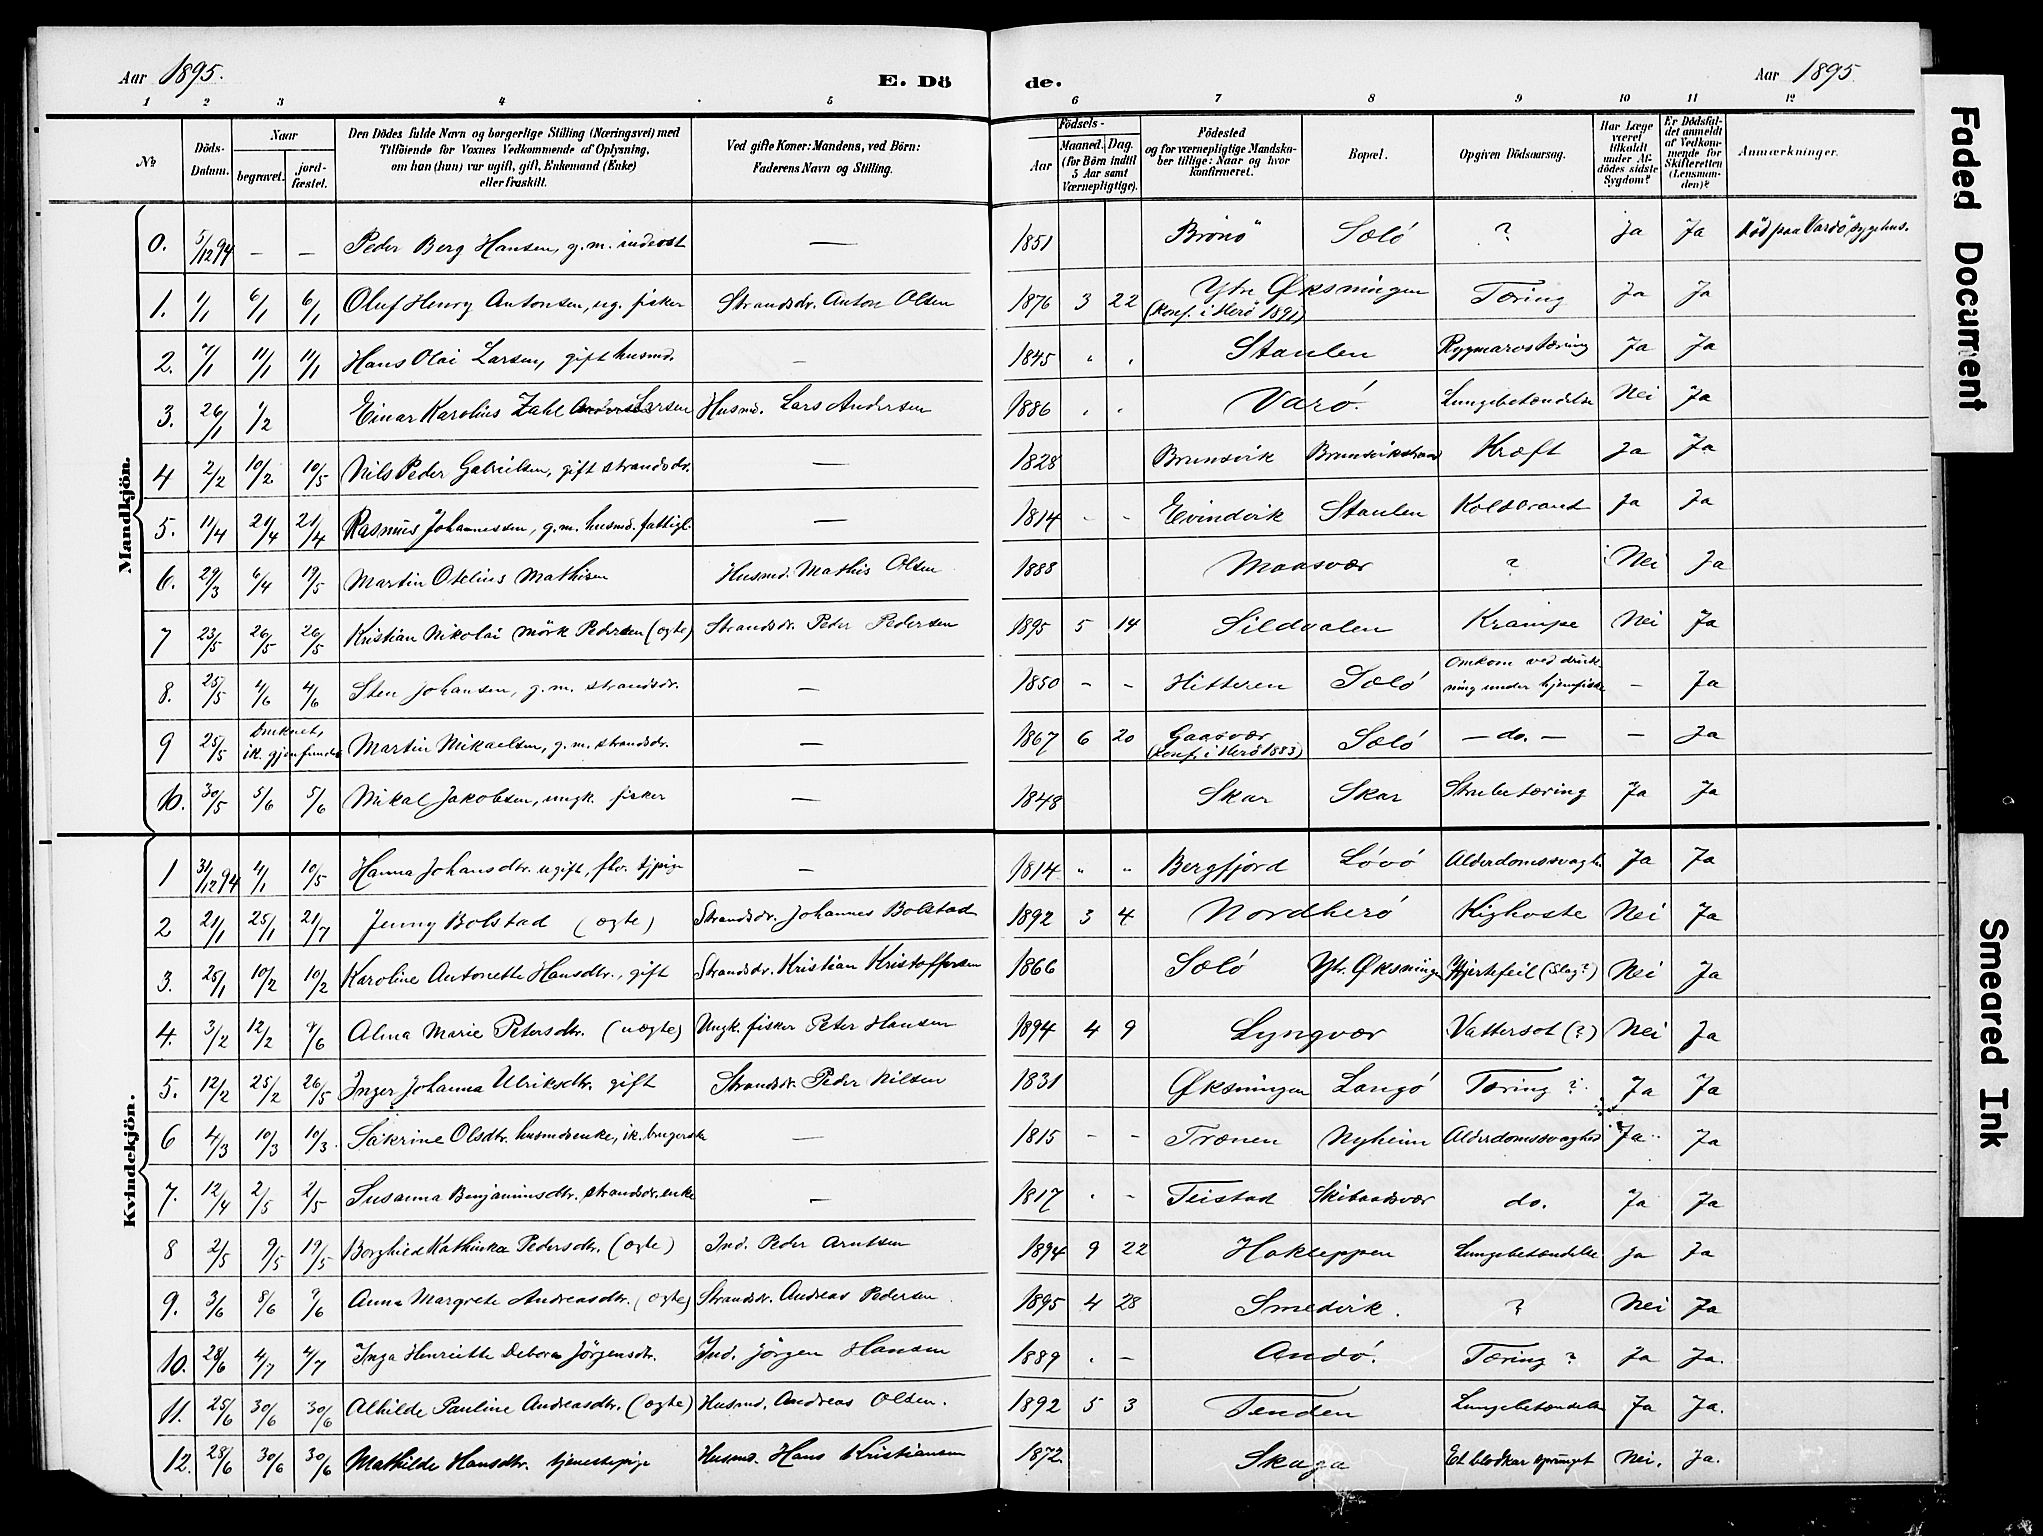 Aar 1895. E. Dö de. Aar 1895.
1 2 3 4 5 6 7 8 9 10 11 12
No Döds-Datum. Naar begravet. jord-fæstet. Den Dödes fulde Navn og borgerlige Stilling (Næringsvei) med Tilföiende for Voxnes Vedkommende af Oplysning, om han (hun) var ugift, gift, Enkemand (Enke) eller fraskilt. Ved gifte Koner: Mandens, ved Börn: Faderens Navn og Stilling. Födsels- Aar Maaned. Dag. (for Börn indtil 5 Aar samt Værnepligtige). Födested og for værnepligtige Mandskaber tillige: Naar og hvor konfirmeret. Bopæl. Opgiven Dödsaarsag. Har Læge været tilkaldt under Afdödes sidste Sygdom? Er Dödsfaldet anmeldt af Vedkommende for Skifteretten (Lensmanden)? Anmærkninger.
Mandkjön.
0. 5/12 94 — — Peder Berg Hansen, g.m. inderst — 1851 Brönö Solö ? Ja Ja Död paa Vardö sygehus.
1. 1/1 6/1 6/1 Oluf Henry Antonsen, ug. fisker Strandsdr. Anton Olsen 1876 3 22 Ytr Øksningen (Konf. i Herö 1891) Tæring Ja Ja
2. 7/1 11/1 11/1 Hans Olai Larsen, gift husmd. — 1845 " " Staulen Rygmarvstæring Ja Ja
3. 26/1 1/2 Einar Karolius Zahl Larsen Husmd. Lars Andersen 1886 " " Varö. Lungebetændelse Nei Ja
4 2/2 10/2 10/5 Nils Peder Gabrielsen, gift strandsdr. — 1828 Brunsvik Brunsvikstrand Kræft Ja Ja
5. 11/4 21/4 21/4 Rasmus Johannessen, g.m. husmd. fattigl. — 1814 - - Evindvik Staulen Koldbrand Ja Ja
6. 29/3 6/4 19/5 Martin Otelius Mathisen Husmd. Mathis Olsen 1888 Maasvær ? Nei Ja
7 23/5 26/5 26/5 Kristian Nikolai Mörk Pedersen (ægte) Strandsdr. Peder Pedersen 1895 5 14 Sildvalen Krampe Nei Ja
8. 25/5 4/6 4/6 Sten Johansen, g.m. strandsdr. — 1850 - - Hitteren Solö Omkom ved drukning under hjemfiske — Ja
9 25/5 Druknet, ik. gjenfundet Martin Mikaelsen, g.m. strandsdr. — 1867 6 20 Gaasvær (Konf. i Herö 1883) Solö — do. — — Ja
10. 30/5 5/6 5/6 Mikal Jakobsen, ungk. fisker — 1848 Skar Skar Strubetæring Ja Ja
Kvindekjön.
1 31/12 94 4/1 10/5 Hanna Johansdtr. ugift, fhv. tjpige — 1814 " " Bergfjord Lövö Alderdomssvaghe Ja Ja
2 21/1 25/1 21/7 Jenny Bolstad (ægte) Strandsdr. Johannes Bolstad 1892 3 4 Nordherö Kighoste Nei Ja
3. 25/1 10/2 10/2 Karoline Antonette Hansdtr., gift Strandsdr. Kristian Kristoffersen 1866 Solö Ytr. Øksningen Hjertefeil (Slag?) Nei Ja
4. 3/2 12/2 9/6 Alma Marie Petersdtr. (uægte) Ungk. fisker Peter Hansen 1894 4 9 Lyngvær Vattersot (?) Nei Ja
5. 12/2 25/2 26/5 Inger Johanna Ulriksdtr. gift Strandsdr. Peder Nilsen 1831 Øksningen Langö Tæring ? Ja Ja
6 4/3 10/3 10/3. Sakrine Olsdtr. husmdsenke, ik. brugerske — 1815 - - Trænen Nyheim Alderdomssvaghed Ja Ja
7. 12/4 2/5 2/5 Susanna Benjaminsdtr. strandsdr.enke — 1817 " - Teistad Skibaadsvær do. Ja Ja
8 2/5 9/5 19/5 Borghild Kathinka Pedersdtr. (ægte) Ind. Peder Arntsen 1894 9 22 Hakleppen Lungebetændelse Ja Ja
9. 3/6 8/6 9/6 Anna Margrete Andreasdtr. (ægte) Strandsdr. Andreas Pedersen. 1895 4 28 Smedvik. ? Nei Ja
10. 28/6 4/7 4/7 Inga Henriette Debora Jörgensdtr. Ind. Jörgen Hansen 1889 " - Andö. Tæring ? Ja Ja.
11. 25/6 30/6 30/6 Alhilde Pauline Andreasdtr. (ægte) Husmd. Andreas Olsen. 1892 5 3 Tenden Lungebetændelse Ja Ja.
12. 28/6 30/6 30/6 Mathilde Hansdtr. tjenestepige Husmd. Hans Kristiansen 1872. Skaga Et blodkar sprunget Nei. Ja.
Faded Document
Smeared Ink